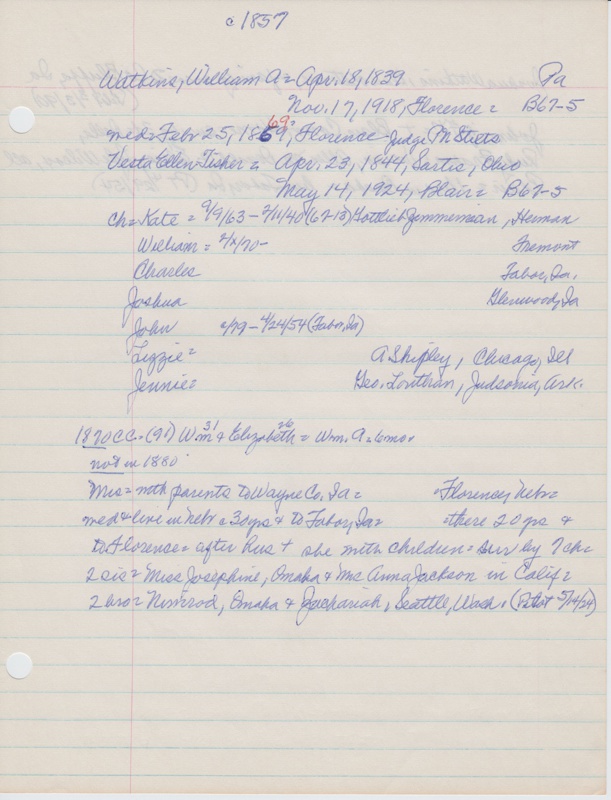 c 1857
Watkins, William A = Apr. 18, 1839 Pa
Nov. 17, 1918, Florence = B67-5
69.
med = Febr 25, 1869, Florence - Judge M Stuts
Vesta Ellen Fisher = Apr. 23, 1844, Sartis, Ohio
May 14, 1924, Blair = B67-5
ch = Kate = 9/9/63 - 2/11/40 (67-13) Gottlieb Zimmerman, Herman
William = 2/x/70 - Fremont
Charles Tabor, Ia.
Joshua Glenwood, Ia
John c/79 - 4/24/54 (Tabor, Ia)
Lizzie = A Shipley, Chicago, Ill
Jennie = Geo. Lonthran, Judsonia, Ark.
1870 C.C. = (91) Wm 31 & Elizabeth 26 = Wm. A. = 6mo.
not in 1880
Mrs = with parents to Wayne Co, Ia = Florence, Nebr =
med & live in Nebr = 30 yrs & to Tabor, Ia = there 20 yrs &
to Florence = after hus + she with children = sur by 7 ch =
2 sis = Miss Josephine, Omaha & Mrs Anna Jackson in Calif =
2 bro = Nimrod, Omaha & Zachariah, Seattle, Wash. (Pilot 5/14/24)